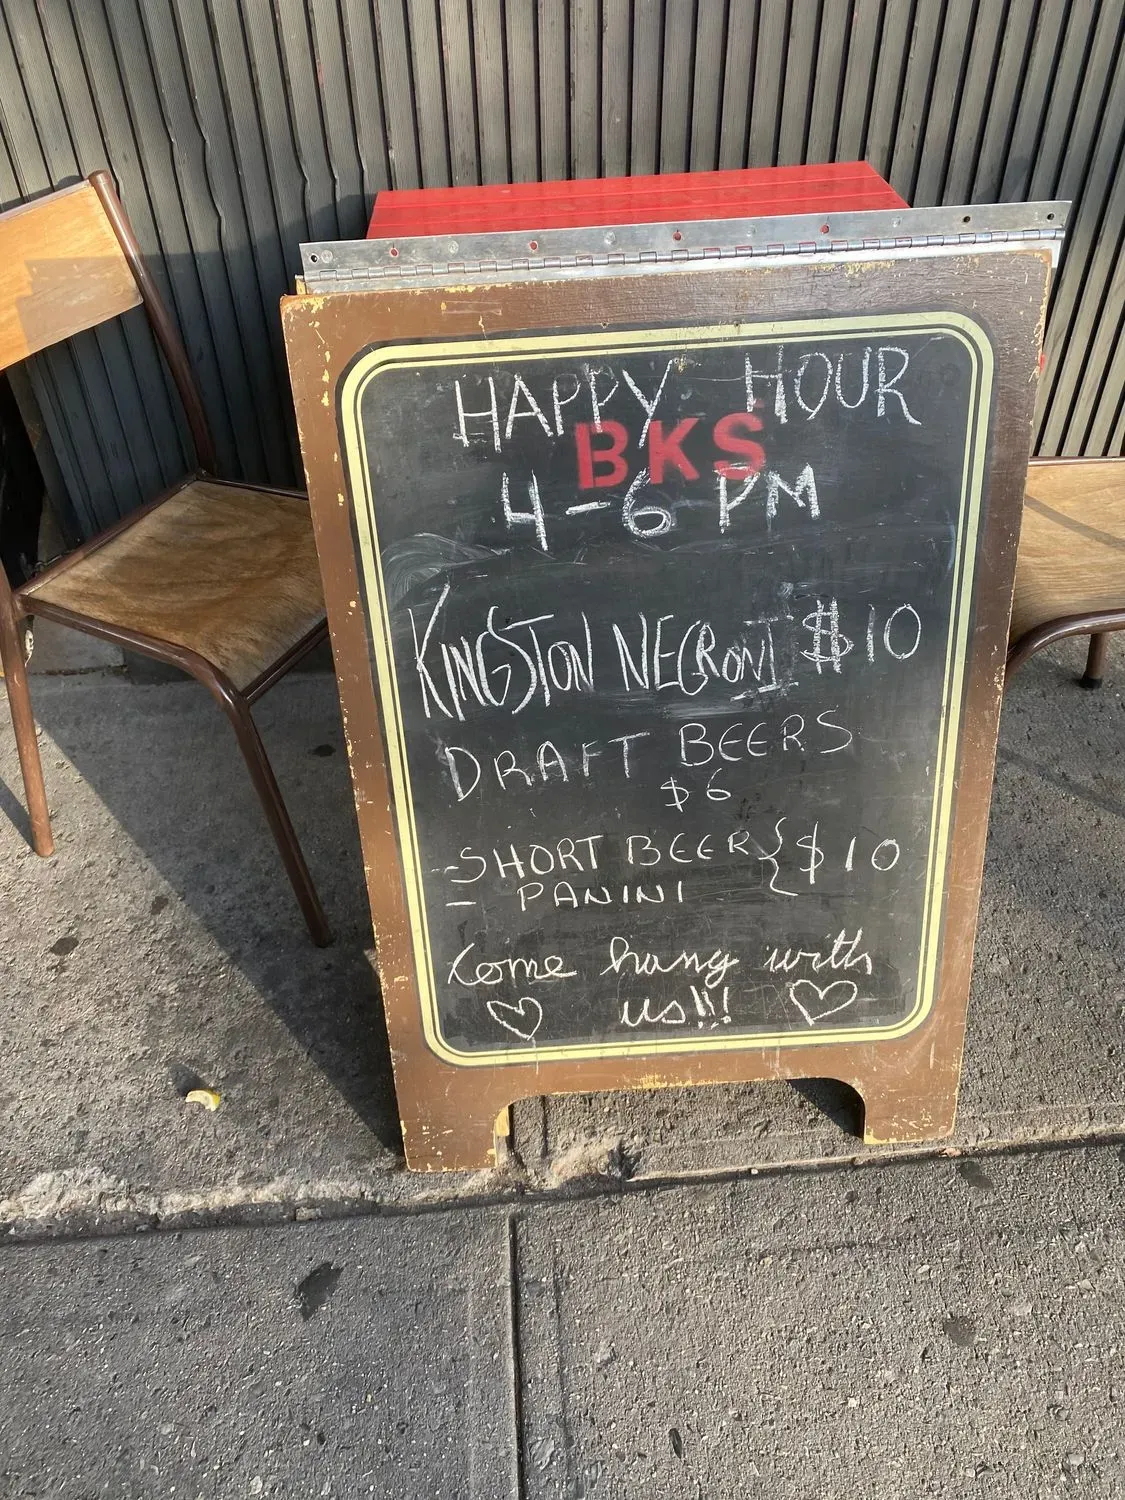 HAPPY HOUR
BKS
4-6 PM
KINGSTON NEGRONI $10
DRAFT BEERS
$6
- SHORT BEER } $10
- PANINI
Come hang with
♡ us!!! ♡